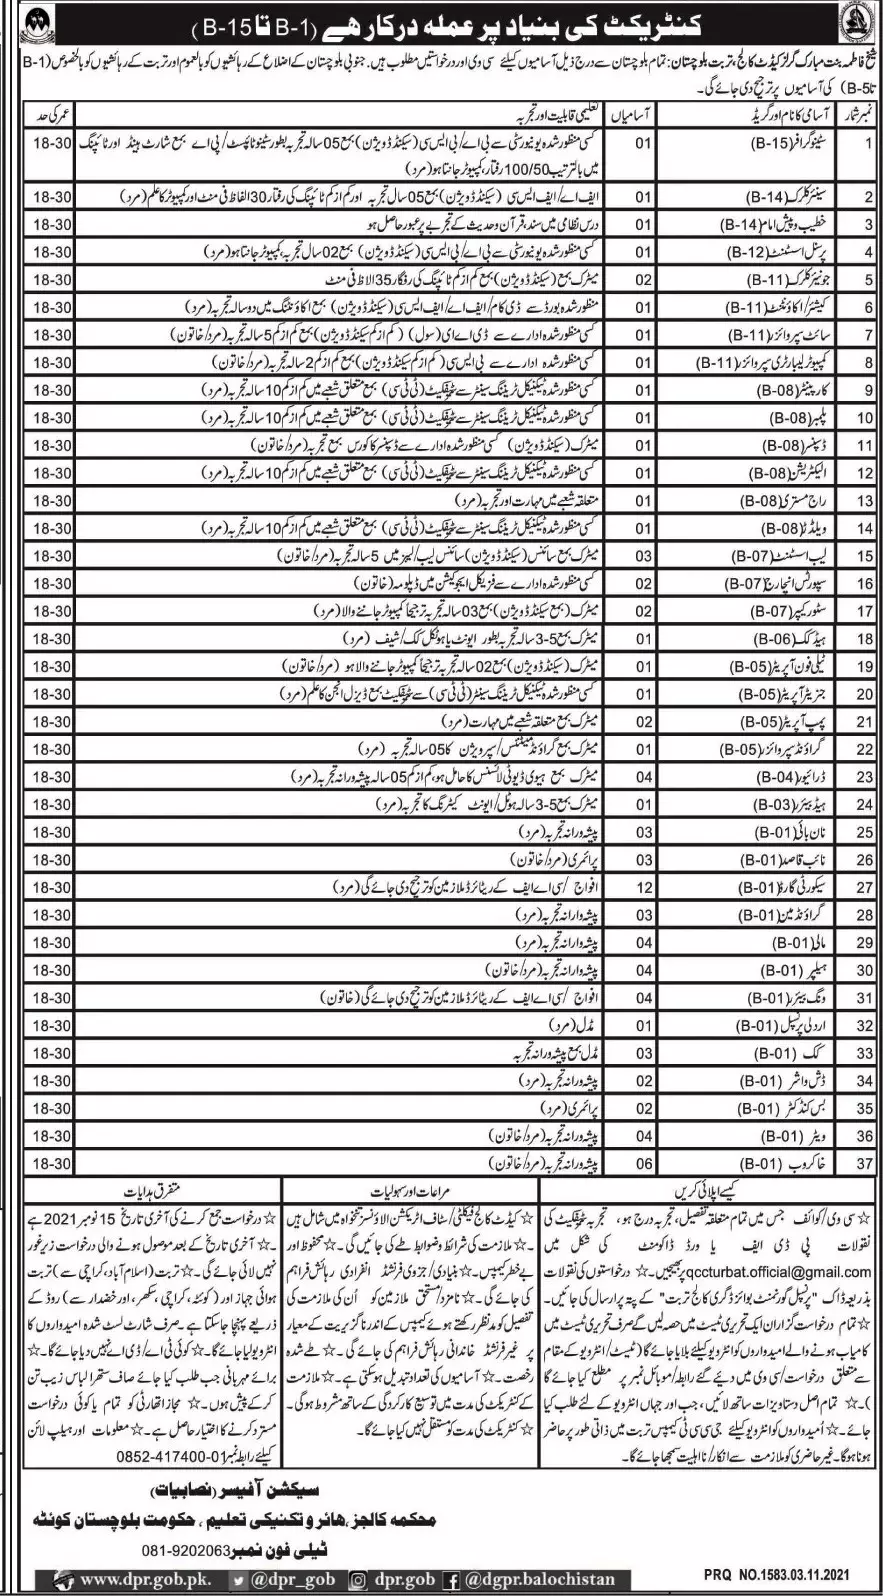 کنٹریکٹ کی بنیاد پر عملہ درکار ھے (B-1 تا B-15)
شیخ فاطمہ بنت مبارک گرلز کیڈٹ کالج، تربت بلوچستان: تمام بلوچستان سے درج ذیل آسامیوں کیلئے سی وی اور درخواستیں مطلوب ہیں۔ جنوبی بلوچستان کے اضلاع کے رہائشیوں کو بالعموم اور تربت کے رہائشیوں کو بالخصوص (B-1
تا B-5) کی آسامیوں پر ترجیح دی جائے گی۔
نمبر شمار آسامی کا نام اور گریڈ آسامیاں تعلیمی قابلیت اور تجربہ عمر کی حد
1 سٹینوگرافر (B-15) 01 کسی منظور شدہ یونیورسٹی سے بی اے/ بی ایس سی (سیکنڈ ڈویژن) بمع 05 سالہ تجربہ بطور سٹینو ٹائپسٹ/ پی اے بمع شارٹ ہینڈ اور ٹائپنگ 18-30
میں بالترتیب 100/50 رفتار، کمپیوٹر جانتا ہو (مرد)
2 سینئر کلرک (B-14) 01 ایف اے/ ایف ایس سی (سیکنڈ ڈویژن) بمع 05 سال تجربہ اور کم از کم ٹائپنگ کی رفتار 30 الفاظ فی منٹ اور کمپیوٹر کا علم (مرد) 18-30
3 خطیب و پیش امام (B-14) 01 درس نظامی میں سند، قرآن و حدیث کے تجربے پر عبور حاصل ہو 18-30
4 پرسنل اسسٹنٹ (B-12) 01 کسی منظور شدہ یونیورسٹی سے بی اے/ بی ایس سی (سیکنڈ ڈویژن) بمع 02 سال تجربہ، کمپیوٹر جانتا ہو (مرد) 18-30
5 جونیئر کلرک (B-11) 02 میٹرک بمع (سیکنڈ ڈویژن) بمع کم از کم ٹائپنگ کی رفتار 35 الفاظ فی منٹ 18-30
6 کیشئر/ اکاؤنٹنٹ (B-11) 01 منظور شدہ بورڈ سے ڈی کام/ ایف اے/ ایف ایس سی (سیکنڈ ڈویژن) بمع اکاؤنٹنگ میں دو سالہ تجربہ (مرد) 18-30
7 سائٹ سپروائزر (B-11) 01 کسی منظور شدہ ادارے سے ڈی اے ای (سول) (کم از کم سیکنڈ ڈویژن) بمع کم از کم 5 سالہ تجربہ (مرد/ خاتون) 18-30
8 کمپیوٹر لیبارٹری سپروائزر (B-11) 01 کسی منظور شدہ ادارے سے بی ایس سی (کم از کم سیکنڈ ڈویژن) بمع کم از کم 2 سالہ تجربہ (خاتون) 18-30
9 کارپینٹر (B-08) 01 کسی منظور شدہ ٹیکنیکل ٹریننگ سینٹر سے سرٹیفکیٹ (ٹی ٹی سی) بمع متعلق شعبے میں کم از کم 10 سالہ تجربہ (مرد) 18-30
10 پلمبر (B-08) 01 کسی منظور شدہ ٹیکنیکل ٹریننگ سینٹر سے سرٹیفکیٹ (ٹی ٹی سی) بمع متعلق شعبے میں کم از کم 10 سالہ تجربہ (مرد) 18-30
11 ڈسپنسر (B-08) 01 میٹرک (سیکنڈ ڈویژن) کسی منظور شدہ ادارے سے ڈسپنسر کا کورس بمع تجربہ (مرد/ خاتون) 18-30
12 الیکٹریشن (B-08) 01 کسی منظور شدہ ٹیکنیکل ٹریننگ سینٹر سے سرٹیفکیٹ (ٹی ٹی سی) بمع متعلق شعبے میں کم از کم 10 سالہ تجربہ (مرد) 18-30
13 راج مستری (B-08) 01 متعلقہ شعبے میں مہارت اور تجربہ (مرد) 18-30
14 ویلڈر (B-08) 01 کسی منظور شدہ ٹیکنیکل ٹریننگ سینٹر سے سرٹیفکیٹ (ٹی ٹی سی) بمع متعلق شعبے میں کم از کم 10 سالہ تجربہ (مرد) 18-30
15 لیب اسسٹنٹ (B-07) 03 میٹرک بمع سائنس (سیکنڈ ڈویژن) سائنس لیب/ لیبز میں 5 سالہ تجربہ (مرد/ خاتون) 18-30
16 سپورٹس انچارج (B-07) 02 کسی منظور شدہ ادارے سے فزیکل ایجوکیشن میں ڈپلومہ (خاتون) 18-30
17 سٹور کیپر (B-07) 02 میٹرک (بمع سیکنڈ ڈویژن) بمع 03 سالہ تجربہ ترجیحاً کمپیوٹر جاننے والا (مرد) 18-30
18 ہیڈ کک (B-06) 01 میٹرک بمع 5-3 سالہ تجربہ بطور ایونٹ یا ہوٹل کک/ شیف (مرد) 18-30
19 ٹیلی فون آپریٹر (B-05) 01 میٹرک (سیکنڈ ڈویژن) بمع 02 سالہ تجربہ ترجیحاً کمپیوٹر جاننے والا ہو (مرد/ خاتون) 18-30
20 جنریٹر آپریٹر (B-05) 01 کسی منظور شدہ ٹیکنیکل ٹریننگ سینٹر (ٹی ٹی سی) سے سرٹیفکیٹ بمع ڈیزل انجن کا علم (مرد) 18-30
21 پمپ آپریٹر (B-05) 02 میٹرک بمع متعلقہ شعبے میں مہارت (مرد) 18-30
22 گراؤنڈ سپروائزر (B-05) 01 میٹرک بمع گراؤنڈ مینٹننس/ سپرویژن کا 05 سالہ تجربہ (مرد) 18-30
23 ڈرائیور (B-04) 04 میٹرک بمع ہیوی ڈیوٹی لائسنس کا حامل ہو، کم از کم 05 سالہ پیشہ ورانہ تجربہ (مرد) 18-30
24 ہیڈ بیئرر (B-03) 01 میٹرک بمع 5-3 سالہ ہوٹل/ ایونٹ کیٹرنگ کا تجربہ (مرد) 18-30
25 نان بائی (B-01) 03 پیشہ ورانہ تجربہ (مرد) 18-30
26 نائب قاصد (B-01) 03 پرائمری (مرد/ خاتون) 18-30
27 سیکورٹی گارڈ (B-01) 12 افواج/ سی اے ایف کے ریٹائرڈ ملازمین کو ترجیح دی جائے گی (مرد) 18-30
28 گراؤنڈ مین (B-01) 03 پیشہ وارانہ تجربہ (مرد) 18-30
29 مالی (B-01) 04 پیشہ وارانہ تجربہ (مرد) 18-30
30 ہیلپر (B-01) 04 پیشہ وارانہ تجربہ (مرد/ خاتون) 18-30
31 ونگ بیئرر (B-01) 04 افواج/ سی اے ایف کے ریٹائرڈ ملازمین کو ترجیح دی جائے گی (خاتون) 18-30
32 اردلی پرنسپل (B-01) 01 مڈل (مرد) 18-30
33 کک (B-01) 03 مڈل بمع پیشہ ورانہ تجربہ 18-30
34 ڈش واشر (B-01) 02 پیشہ ورانہ تجربہ (مرد) 18-30
35 بس کنڈکٹر (B-01) 02 پرائمری (مرد) 18-30
36 ویٹر (B-01) 04 پیشہ ورانہ تجربہ (مرد/ خاتون) 18-30
37 خاکروب (B-01) 06 پیشہ ورانہ تجربہ (مرد/ خاتون) 18-30
کیسے اپلائی کریں
☆ سی وی/ کوائف جس میں تمام متعلقہ تفصیل، تجربہ درج ہو، تجربہ سرٹیفکیٹ کی
نقولات پی ڈی ایف یا ورڈ ڈاکومنٹ کی شکل میں
qccturbat.official@gmail.com پر بھیجیں۔ ☆ درخواستوں کی نقولات
بذریعہ ڈاک "پرنسپل گورنمنٹ بوائز ڈگری کالج تربت" کے پتہ پر ارسال کی جائیں۔
☆ تمام درخواست گزاران ایک تحریری ٹیسٹ میں حصہ لیں گے صرف تحریری ٹیسٹ میں
کامیاب ہونے والے امیدواروں کو انٹرویو کیلئے بلایا جائے گا (ٹیسٹ/ انٹرویو کے مقام
سے متعلق درخواست/ سی وی میں دیئے گئے رابطہ/ موبائل نمبر پر مطلع کیا جائے گا
)۔ ☆ تمام اصل دستاویزات ساتھ لائیں، جب اور جہاں انٹرویو کے لئے طلب کیا
جائے۔ ☆ اُمیدواروں کو انٹرویو کیلئے جی سی سی ٹی کیمپس تربت میں ذاتی طور پر حاضر
ہونا ہوگا۔ غیر حاضری کو ملازمت سے انکار/ نا اہلیت سمجھا جائے گا۔
مراعات اور سہولیات
☆ کیڈٹ کالج فیکلٹی/ سٹاف اٹریکشن الاؤنسز تنخواہ میں شامل ہیں
۔ ☆ ملازمت کی شرائط و ضوابط طے کی جائیں گی۔ ☆ محفوظ اور
بے خطر کیمپس۔ ☆ بنیادی/ جزوی فرنشڈ انفرادی رہائش فراہم
کی جائے گی۔ ☆ نامزد/ مستحق ملازمین کو اُن کی ملازمت کی
تفصیل کو مدنظر رکھتے ہوئے کیمپس کے اندر ناگزیریت کے معیار
پر غیر فرنشڈ خاندانی رہائش فراہم کی جائے گی۔ ☆ طے شدہ
رخصت۔ ☆ آسامیوں کی تعداد تبدیل ہو سکتی ہے۔ ☆ ملازمت
کے کنٹریکٹ کی مدت میں توسیع کارکردگی کے ساتھ مشروط ہوگی۔
☆ کنٹریکٹ کی مدت کو مستقل نہیں کیا جائے گا۔
متفرق ہدایات
☆ درخواست جمع کرنے کی آخری تاریخ 15 نومبر 2021 ہے
۔ ☆ آخری تاریخ کے بعد موصول ہونے والی درخواست زیر غور
نہیں لائی جائے گی۔ ☆ تربت (اسلام آباد، کراچی سے) تربت
ہوائی جہاز اور (کوئٹہ، کراچی، سکھر، اور خضدار سے) روڈ کے
ذریعے پہنچا جا سکتا ہے۔ صرف شارٹ لسٹ شدہ امیدواروں کا
انٹرویو لیا جائے گا۔ ☆ کوئی ٹی اے/ ڈی اے نہیں دیا جائے گا۔ ☆
برائے مہربانی جب طلب کیا جائے صاف ستھرا لباس زیب تن
کر کے پیش ہوں۔ ☆ مجاز اتھارٹی کو تمام یا کوئی درخواست
مسترد کرنے کا اختیار حاصل ہے۔ ☆ معلومات اور ہیلپ لائن
کیلئے رابطہ نمبر 0852-417400-01
سیکشن آفیسر (نصابیات)
محکمہ کالجز، ھائر و تکنیکی تعلیم، حکومت بلوچستان کوئٹہ
ٹیلی فون نمبر 081-9202063
PRQ NO.1583.03.11.2021
www.dpr.gob.pk. @dpr_gob dpr.gob @dgpr.balochistan